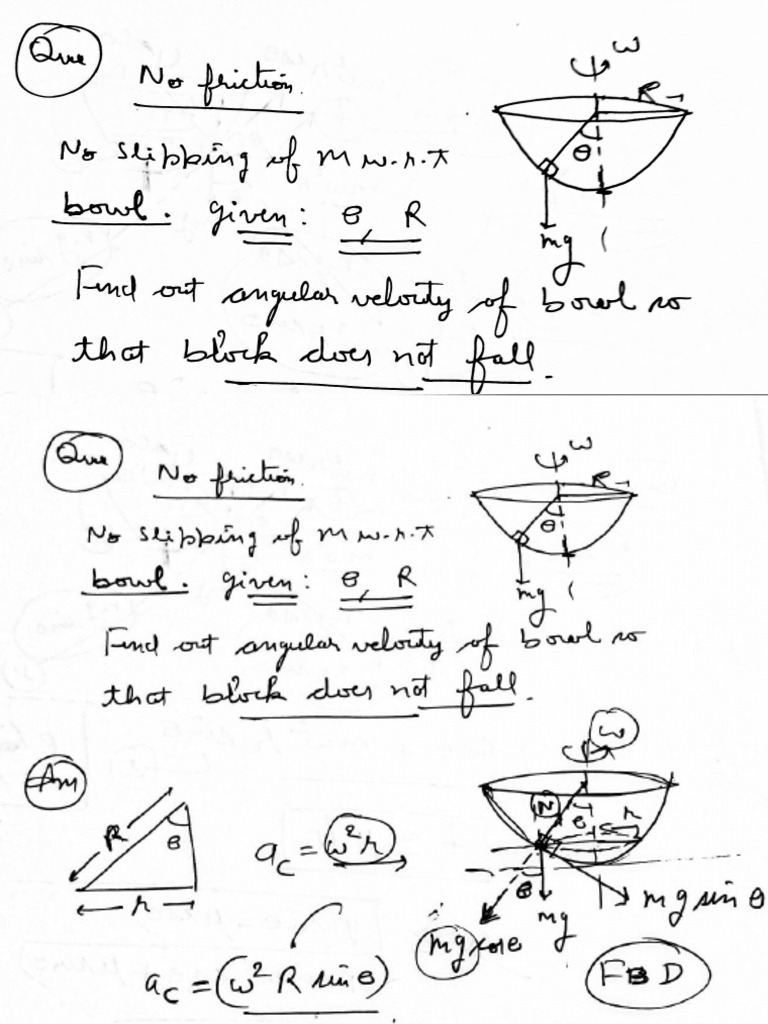 Que
No friction
ω
R
No slipping of m w.r.t
θ
bowl. given: θ R
mg
Find out angular velocity of bowl so
that block does not fall.
Que
No friction
ω
R
No slipping of m w.r.t
θ
bowl. given: θ R
mg
Find out angular velocity of bowl so
that block does not fall.
Ans
ω
R
θ
r
a_c = ω²r
N
θ
r
θ
mg
mg sin θ
mg cos θ
a_c = (ω² R sin θ)
FBD